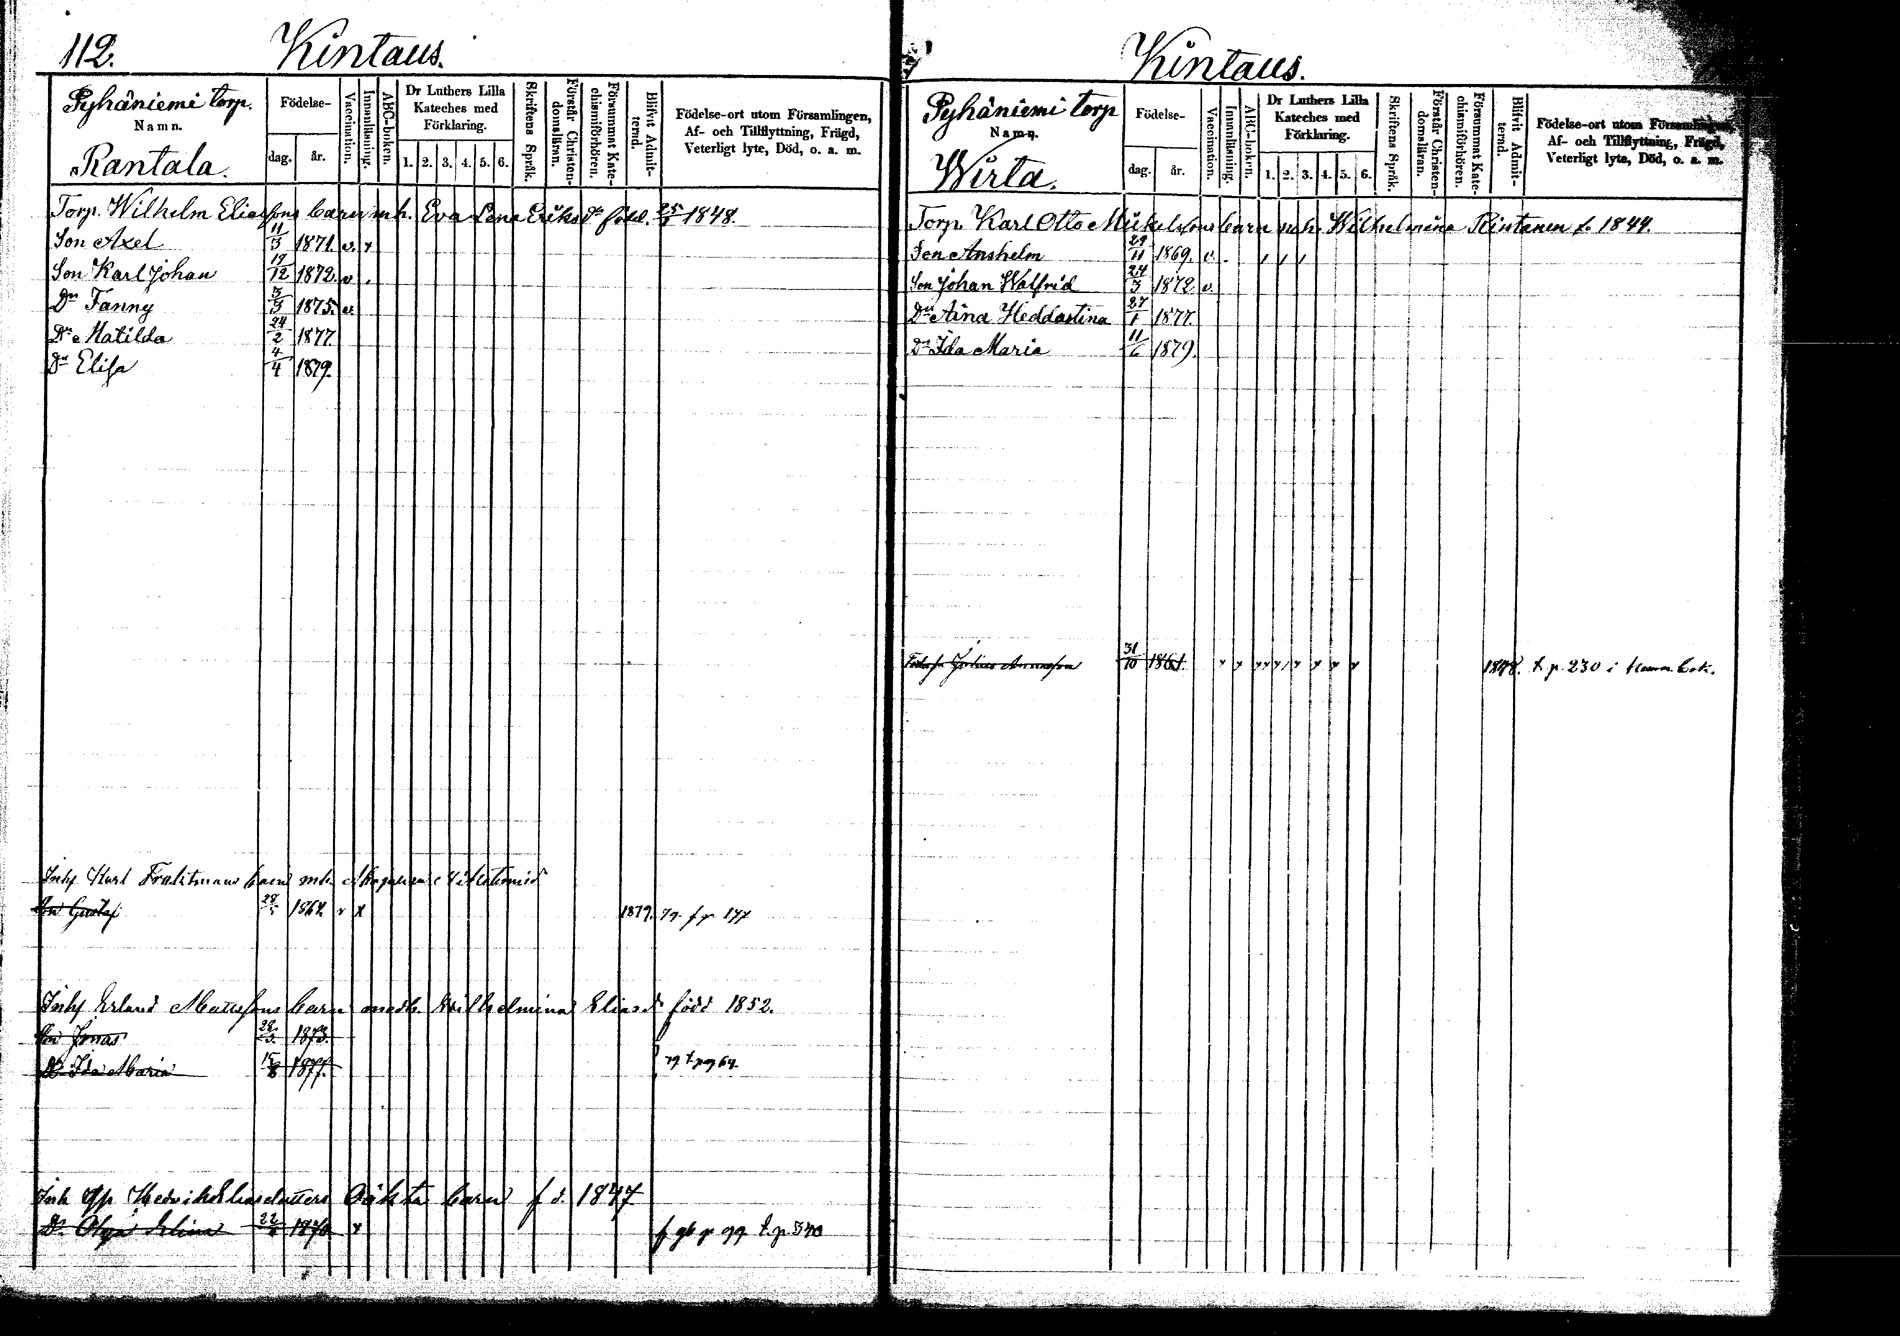 112. Kintaus.
Pyhäniemi torp.
Namn.
Rantala.
Födelse-
dag. år.
Vaccination.
Innanläsning.
ABC-boken.
Dr Luthers Lilla
Kateches med
Förklaring.
1. 2. 3. 4. 5. 6.
Skriftens Språk.
Förstår Christen-
domsläran.
Försummat Kate-
chismiförhören.
Blifvit Admit-
terad.
Födelse-ort utom Församlingen,
Af- och Tillflyttning, Frägd,
Veterligt lyte, Död, o. a. m.
Torp. Wilhelm Eliassons barn mh. Eva Lena Eriksdr född 1848.
Son Axel 11/3 1871. v. x
Son Karl Johan 12 1872. v .
Dr Fanny 3/3 1875. v.
Dr Matilda 24/2 1877
Dr Elisa 4/4 1879.
Inhs Karl barn mh.
Son Gustaf 1864. v x 1879.
Inhs Erland Matssons barn medh. Wilhelmina Eliasdr född 1852.
Son Jonas 1873.
Dr Ida Maria 15/8 1877.
Inh barn f d. 1847
Dr Olga 22 1870 x t. p. 540
Kintaus.
Pyhäniemi torp
Namn.
Wirta.
Födelse-
dag. år.
Vaccination.
Innanläsning.
ABC-boken.
Dr Luthers Lilla
Kateches med
Förklaring.
1. 2. 3. 4. 5. 6.
Skriftens Språk.
Förstår Christen-
domsläran.
Försummat Kate-
chismiförhören.
Blifvit Admit-
terad.
Födelse-ort utom Församlingen,
Af- och Tillflyttning, Frägd,
Veterligt lyte, Död, o. a. m.
Torp. Karl Otto Mickelssons barn mh. Wilhelmina Rintanen f. 1844.
Son Anshelm 29/11 1869. v. .
Son Johan Walfrid 24/3 1872 v.
Dr Aina Heddastina 27/1 1877.
Dr Ida Maria 11/6 1879.
31/10 1861. 1878. t. p. 230 i